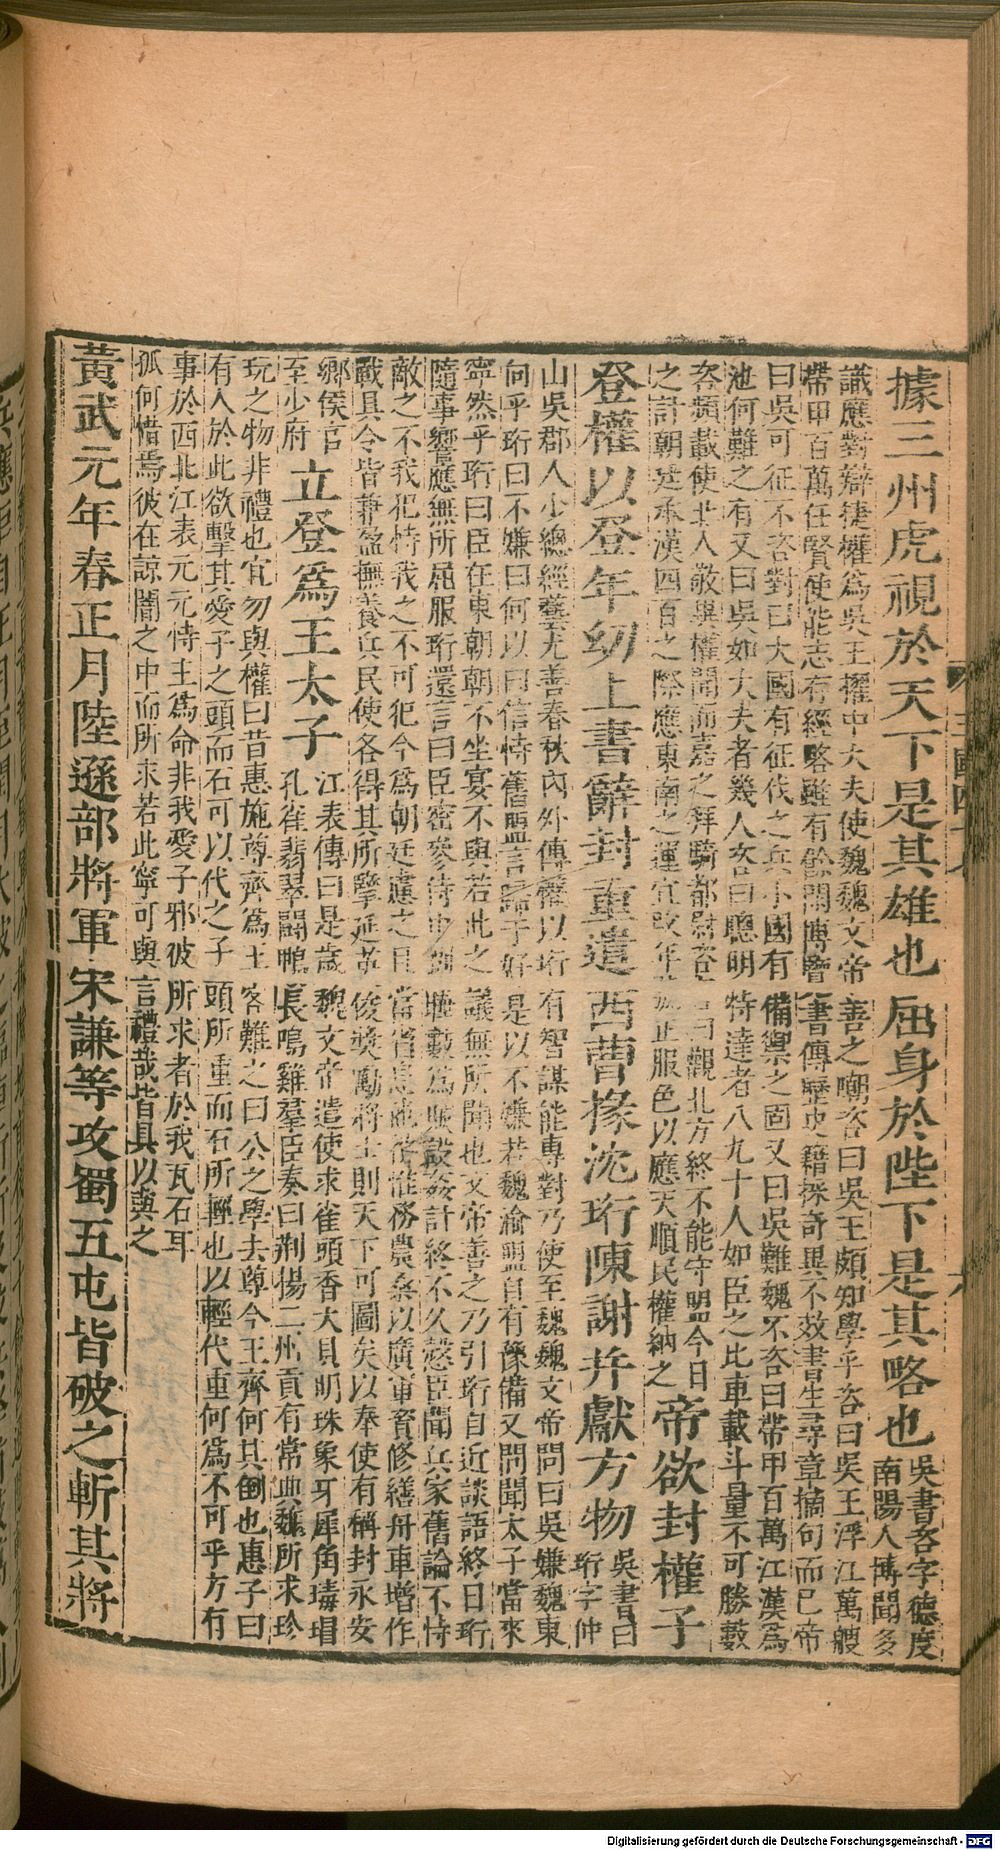 據三州虎視於天下是其雄也屈身於陛下是其略也
吳書咨字德度
南陽人博聞多
識應對辯捷權爲吳王擢中大夫使魏魏文帝善之嘲咨曰吳王頗知學乎咨曰吳王浮江萬艘
帶甲百萬任賢使能志存經略雖有餘閒博覽書傳歷史籍採奇異不效書生尋章摘句而已帝
曰吳可征不咨對曰大國有征伐之兵小國有備禦之固又曰吳難魏不咨曰帶甲百萬江漢爲
池何難之有又曰吳如大夫者幾人咨曰聰明特達者八九十人如臣之比車載斗量不可勝數
咨頻載使北人敬異權聞而嘉之拜騎都尉咨言曰觀北方終不能守盟今日
之計朝廷承漢四百之際應東南之運宜改年正服色以應天順民權納之
帝欲封權子
登權以登年幼上書辭封重遣西曹掾沈珩陳謝并獻方物
吳書曰
珩字仲
山吳郡人少總經藝尤善春秋內外傳權以珩有智謀能專對乃使至魏魏文帝問曰吳嫌魏東
向乎珩曰不嫌曰何以曰信恃舊盟言歸于好是以不嫌若魏渝盟自有豫備又問聞太子當來
寧然乎珩曰臣在東朝朝不坐宴不與若此之議無所聞也文帝善之乃引珩自近談語終日珩
隨事響應無所屈服珩還言曰臣密參侍中劉曄數爲賊設姦計終不久愨臣聞兵家舊論不恃
敵之不我犯恃我之不可犯今爲朝廷慮之且當省息他役惟務農桑以廣軍資修繕舟車增作
戰具令皆兼盈撫養兵民使各得其所擥延英俊獎勵將士則天下可圖矣以奉使有稱封永安
鄉侯官
至少府
立登爲王太子
江表傳曰是歲魏文帝遣使求雀頭香大貝明珠象牙犀角瑇瑁
孔雀翡翠鬬鴨長鳴雞羣臣奏曰荆揚二州貢有常典魏所求珍
玩之物非禮也宜勿與權曰昔惠施尊齊爲王客難之曰公之學去尊今王齊何其倒也惠子曰
有人於此欲擊其愛子之頭而石可以代之子頭所重而石所輕也以輕代重何爲不可乎方有
事於西北江表元元恃主爲命非我愛子邪彼所求者於我瓦石耳
孤何惜焉彼在諒闇之中而所求若此寧可與言禮哉皆具以與之
黃武元年春正月陸遜部將軍宋謙等攻蜀五屯皆破之斬其將
Digitalisierung gefördert durch die Deutsche Forschungsgemeinschaft - DFG